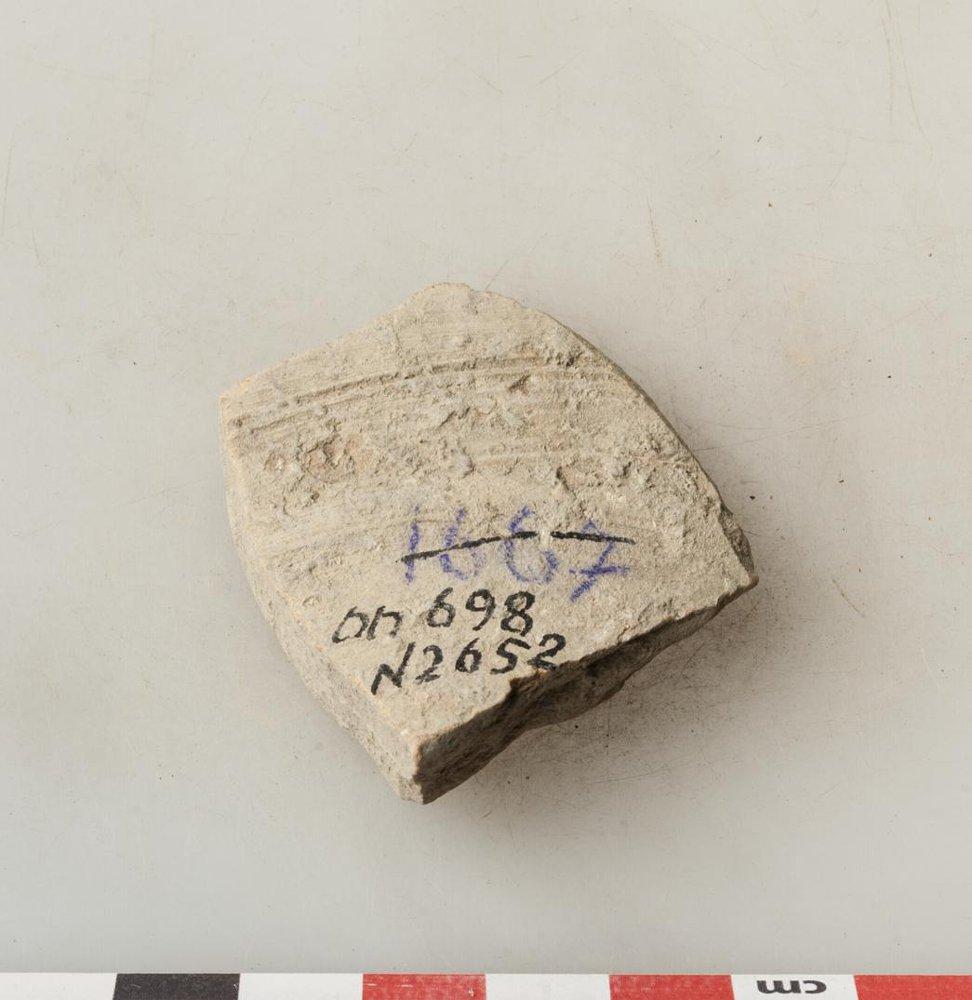 1667
оп 698
N2652
cm